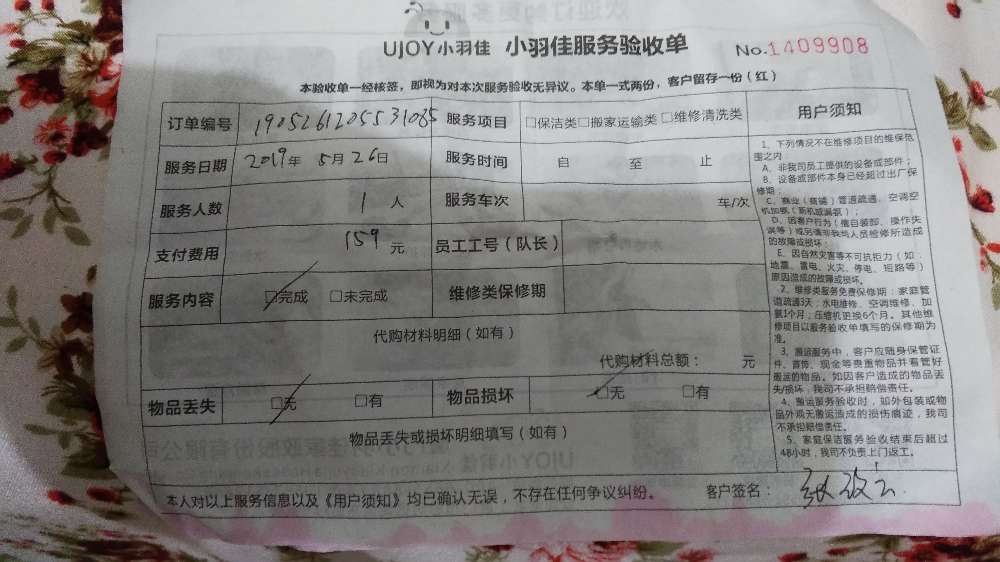 UJOY小羽佳 小羽佳服务验收单 No.1409908
本验收单一经核签，即视为对本次服务验收无异议。本单一式两份，客户留存一份（红）
订单编号 1905261205531085 服务项目 □保洁类□搬家运输类□维修清洗类
服务日期 2019年 5月26日 服务时间 自 至 止
服务人数 1 人 服务车次 车/次
支付费用 159 元 员工工号（队长）
服务内容 □完成 □未完成 维修类保修期
代购材料明细（如有）
代购材料总额： 元
物品丢失 □无 □有 物品损坏 □无 □有
物品丢失或损坏明细填写（如有）
本人对以上服务信息以及《用户须知》均已确认无误，不存在任何争议纠纷。 客户签名：
用户须知
1、下列情况不在维修项目的维保范
围之内
A、非我司员工提供的设备或部件；
B、设备或部件本身已经超过出厂保
修期；
C、商业（商铺）管道疏通、空调空
机加氨（新机或漏氨）；
D、因客户行为（擅自装卸、操作失
误等）或另请非我司人员检修所造成
的故障或损坏；
E、因自然灾害等不可抗拒力（如：
地震、雷电、火灾、停电、短路等）
原因造成的故障或损坏。
2、维修类服务免费保修期：家庭管
道疏通3天；水电维修、空调维修、加
氨1个月；压缩机更换6个月。其他维
修项目以服务验收单填写的保修期为
准。
3、搬运服务中，客户应随身保管证
件、首饰、现金等贵重物品并看管好
搬运的物品。如因客户造成的物品丢
失/损坏，我司不承担赔偿责任。
4、搬运服务验收时，如外包装或物
品外观无搬运造成的损伤痕迹，我司
不承担赔偿责任。
5、家庭保洁服务验收结束后超过
48小时，我司不负责上门返工。